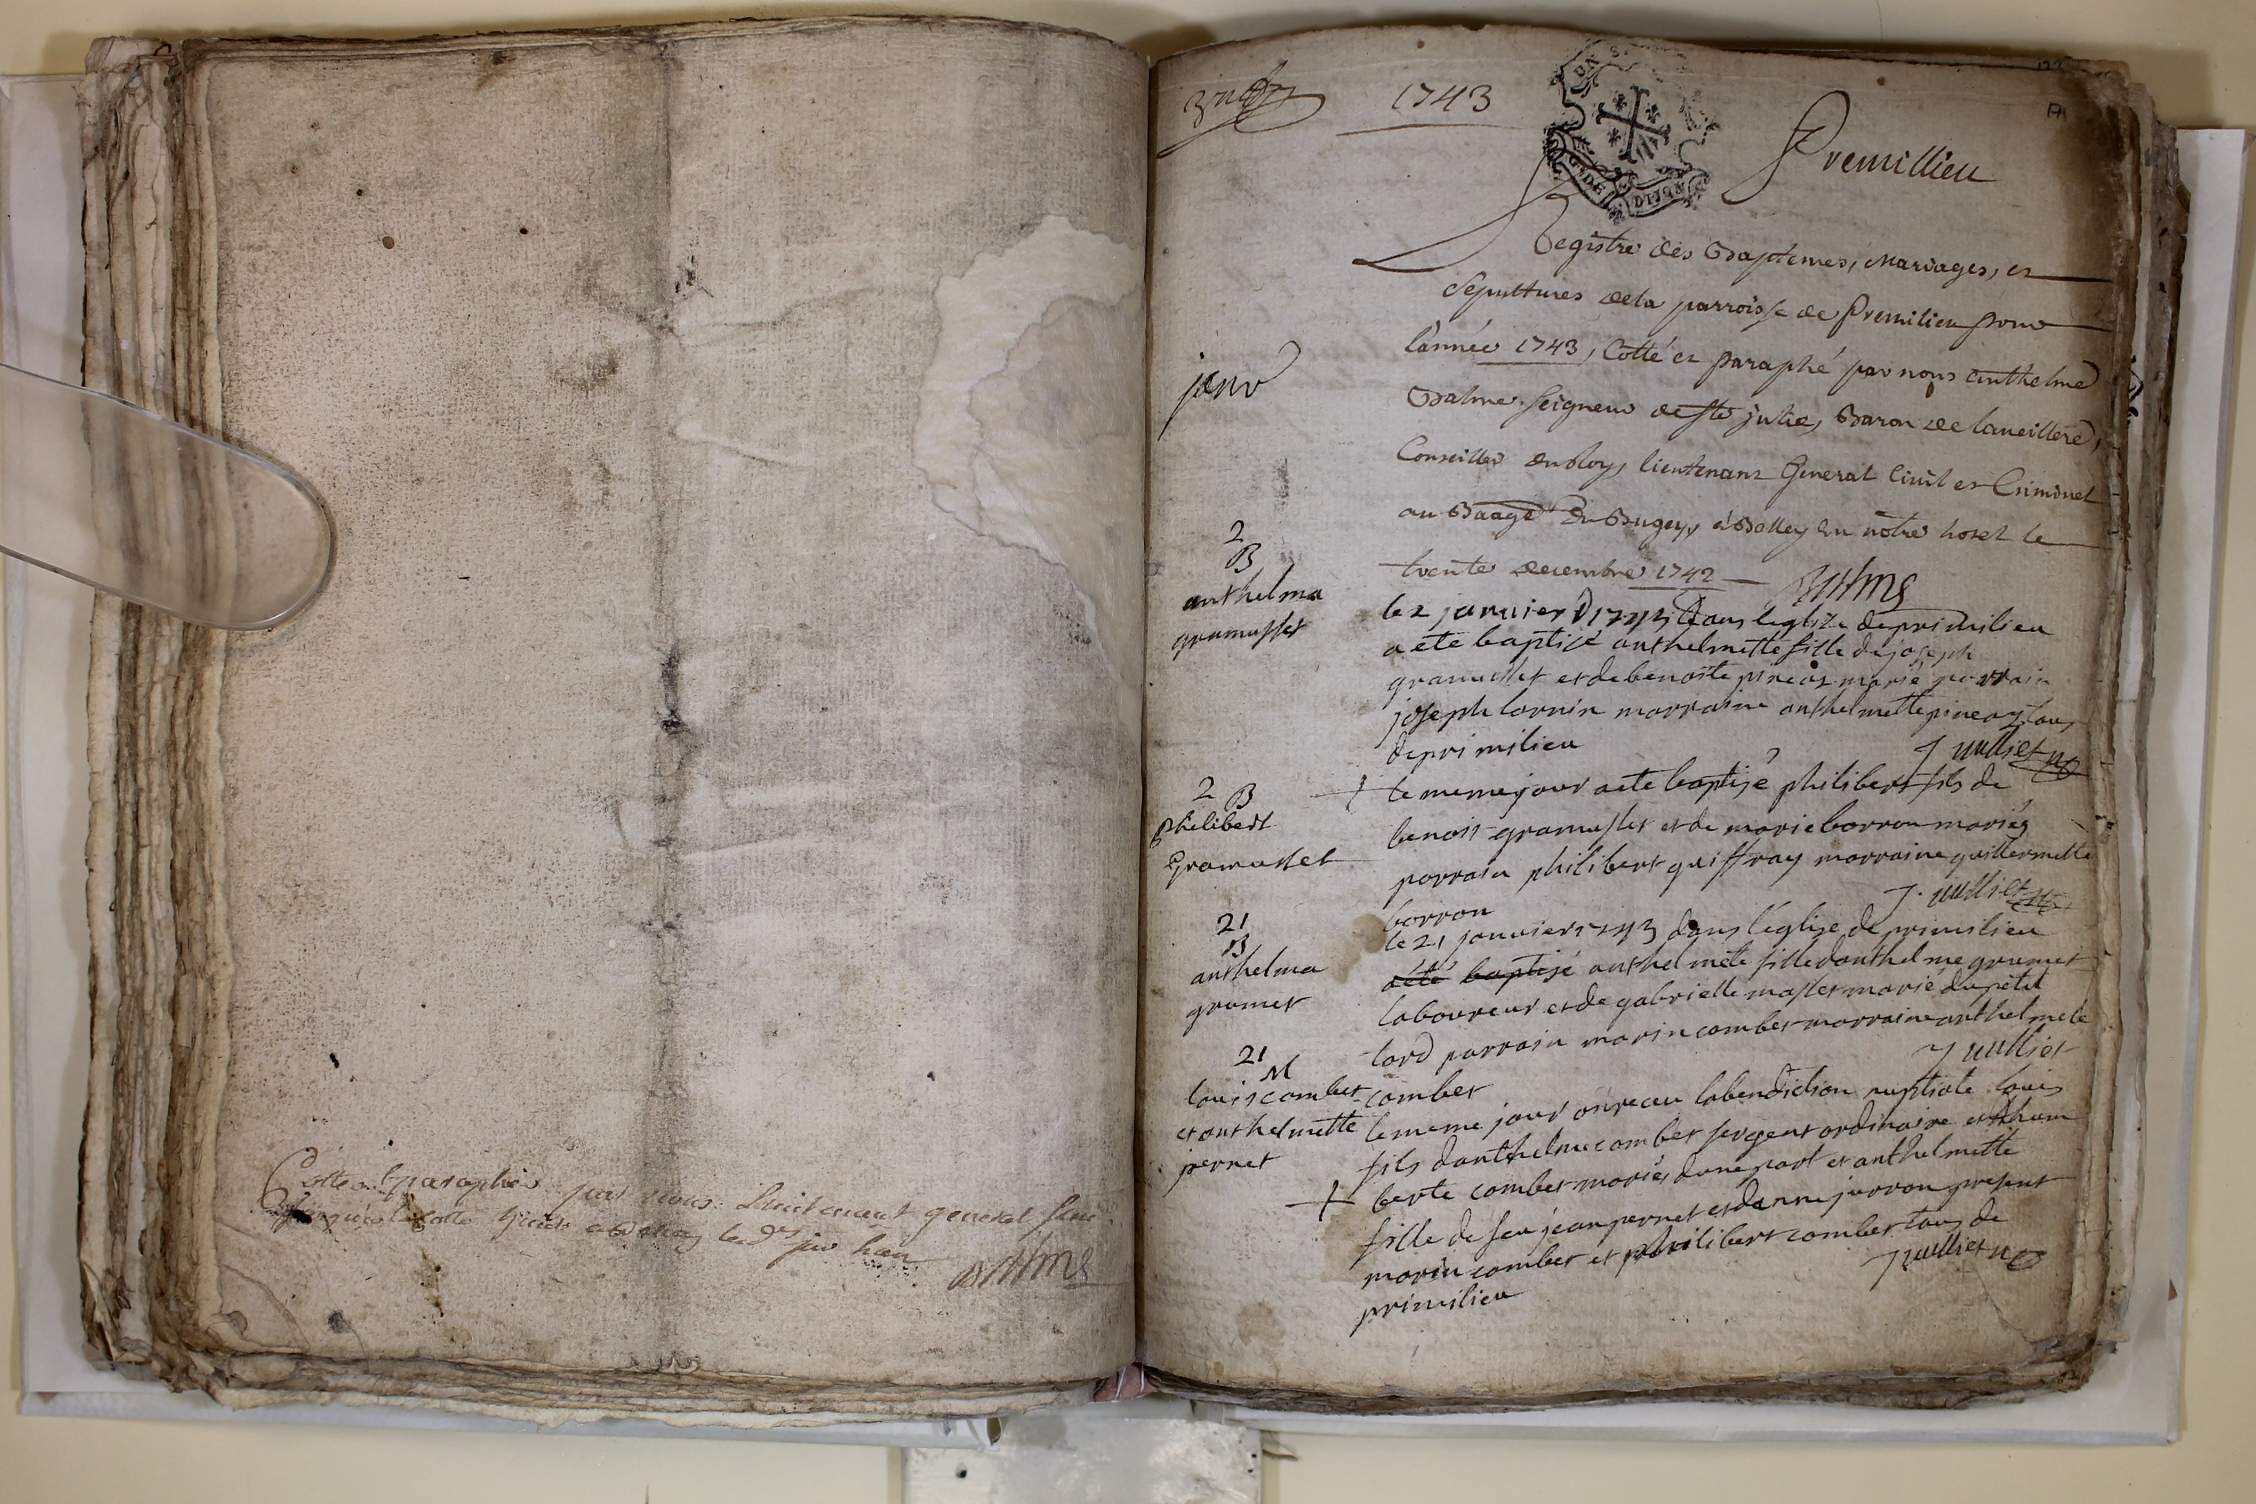 Cotté et paraphé par nous Lieutenant general
Balme
1743
Premillieu
Registre des Baptemes, Mariages, et
Sepultures de la parroisse de Premilieu pour
l'année 1743, Cotté et paraphé par nous anthelme
Balme Seigneur de Ste julie, Baron de
Conseiller du Roy, lieutenant General Civil et Criminel
au Baage du Bugey, à Belley en notre hotel le
trente decembre 1742
Balme
janv
2
B
anthelma
gramusset
le 2 janvier 1743 dans leglize de primilieu
a ete baptisé anthelmette fille de joseph
gramusset et de benoite pineaz marié parrain
joseph marraine anthelmette pineaz tous
de primilieu
J julliet
2 B
philibert
Gramusset
le meme jour a ete baptisé philibert fils de
benoit gramusset et de marie borron mariés
parrain philibert guiffray marraine guillermette
borron
J. julliet
21
B
anthelma
grumet
le 21 janvier 1743 dans leglise de primilieu
a été baptisé anthelmete fille danthelme grumet
laboureur et de gabrielle masset marié du petit
tord parrain marin combet marraine anthelmete
combet
J julliet
21
M
louis combet
et anthelmette
pernet
le meme jour on receu la benediction nuptiale louis
fils danthelme combet sergent ordinaire et
berte combet mariés dune part et anthelmette
fille de feu jean pernet et danne jurron present
marin combet et philibert combet tous de
primilieu
J julliet